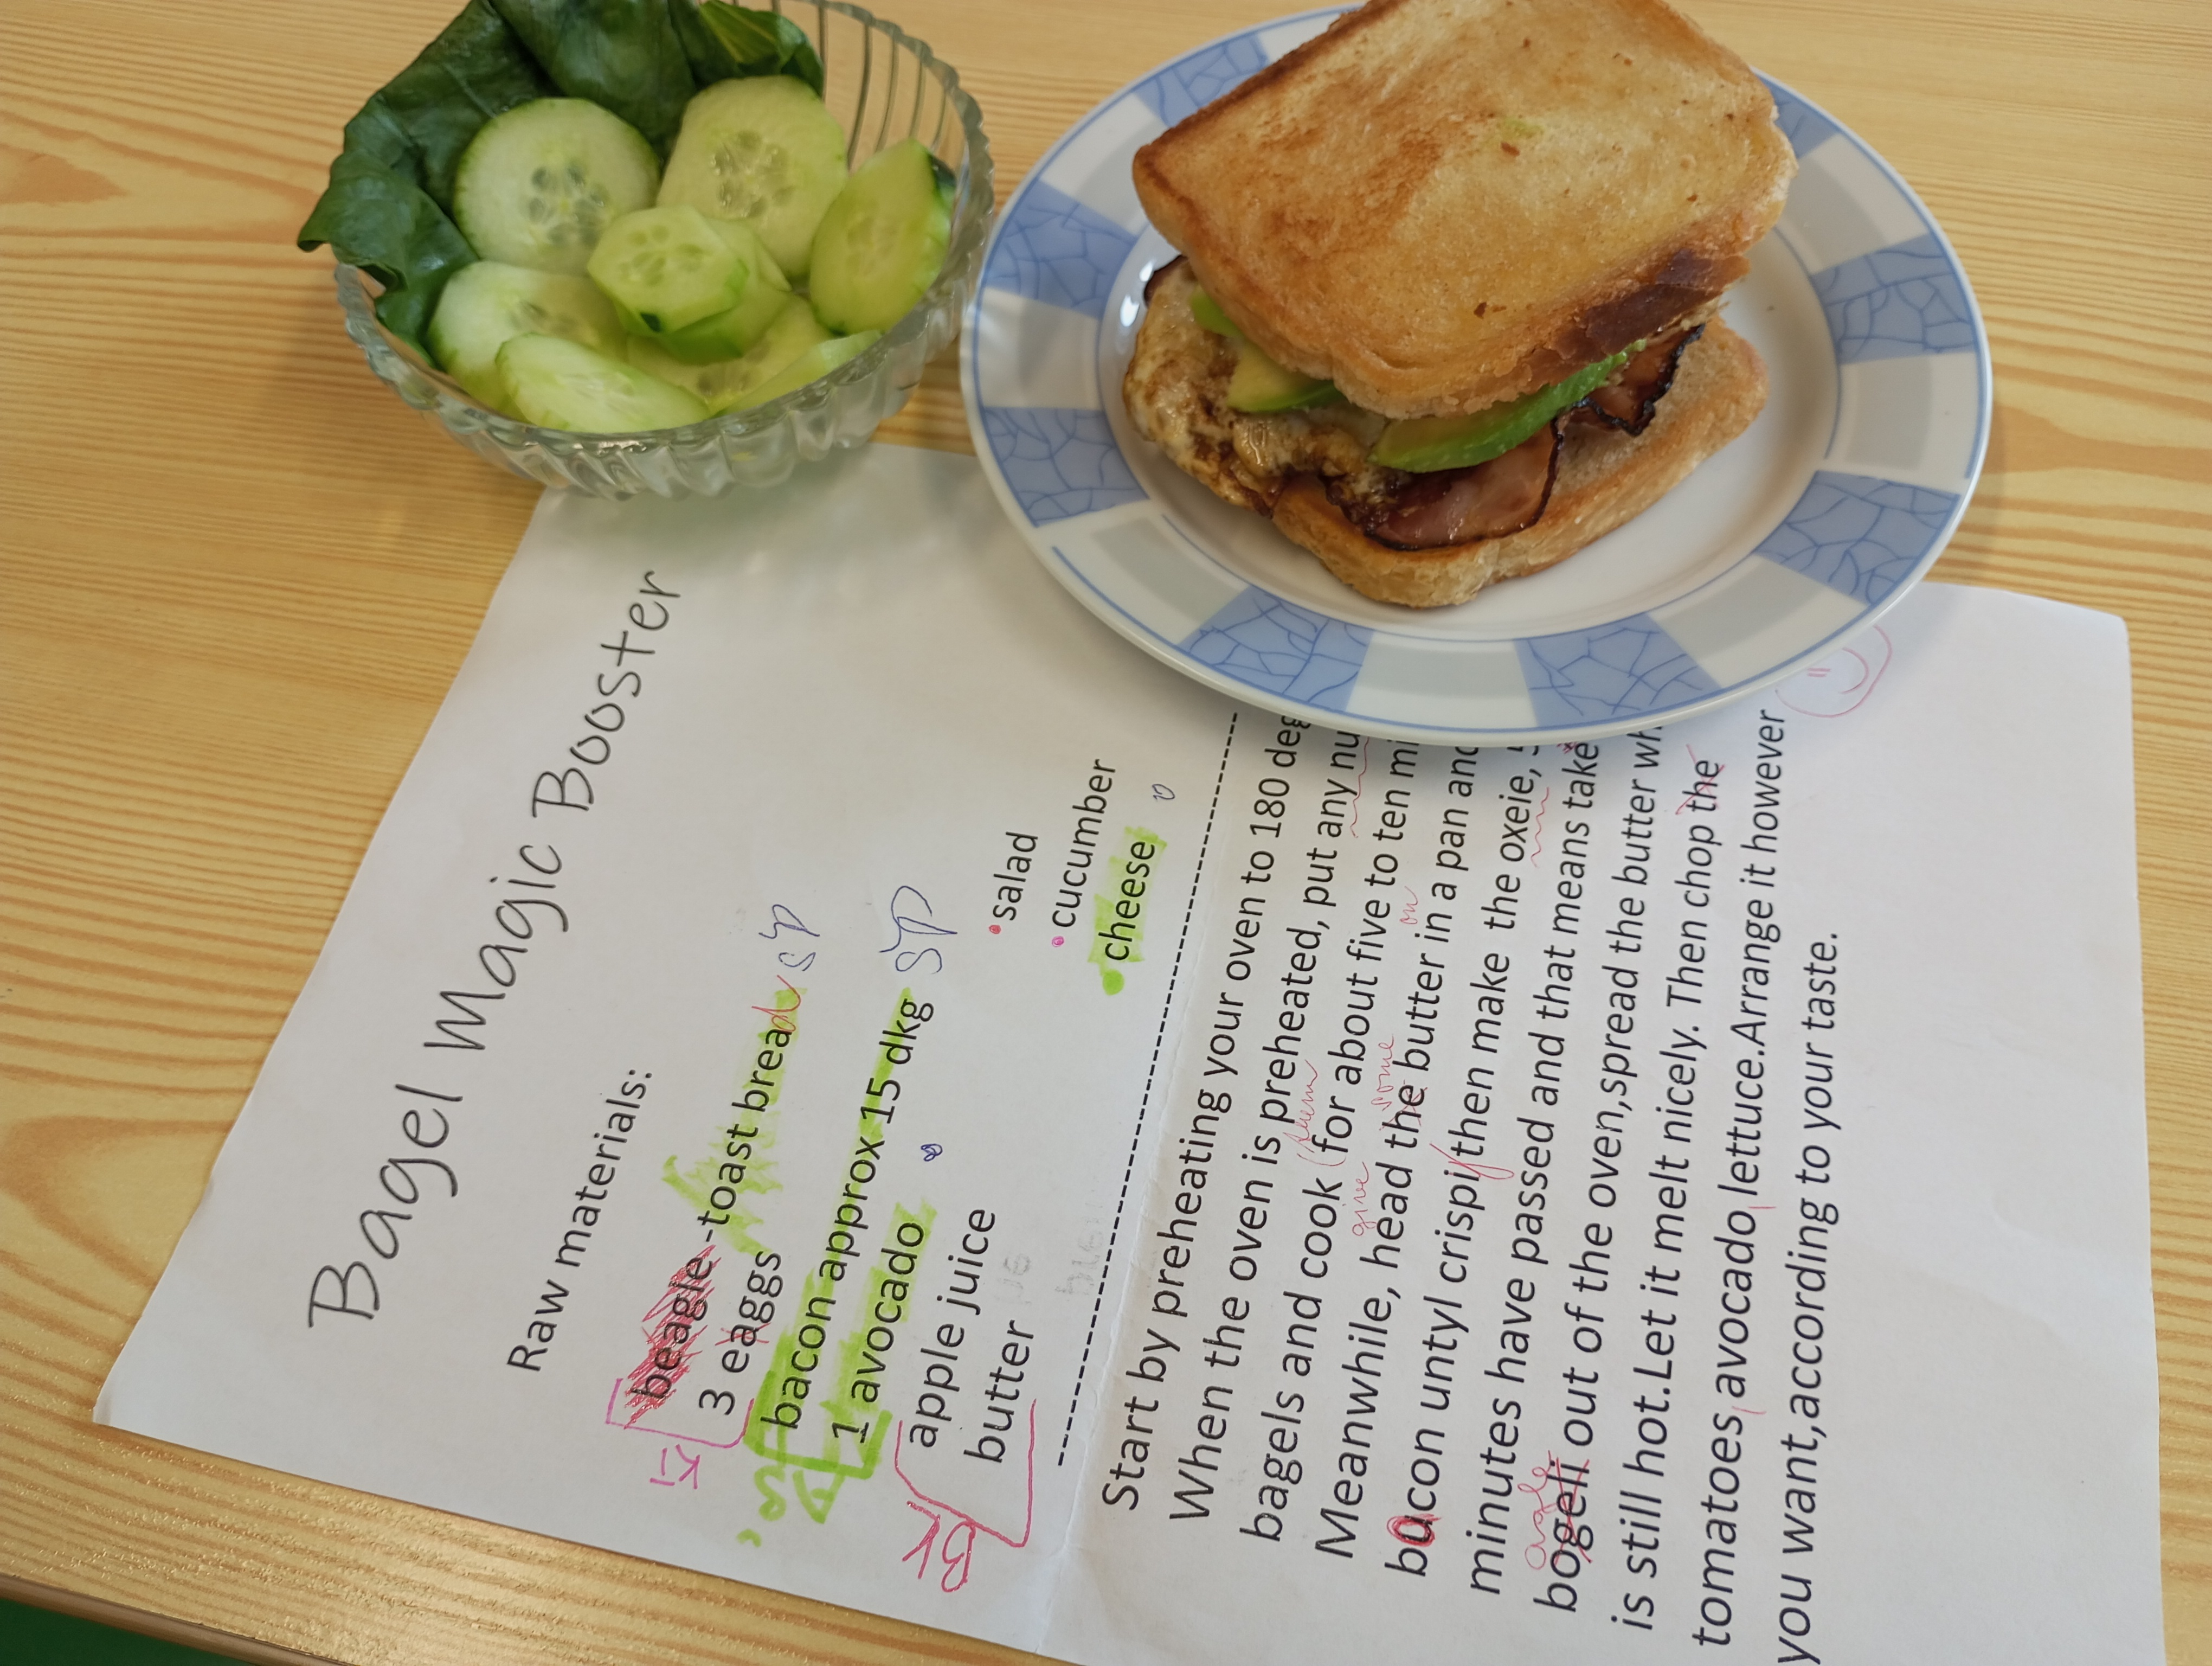 Bagel Magic Booster
Raw materials:
beagle-toast bread sp
3 eaggs
bacon approx 15 dkg sp
1 avocado
apple juice
butter
salad
cucumber
cheese
Start by preheating your oven to 180
When the oven is preheated, put any
bagels and cook for about five to ten
give some on
Meanwhile, head the butter in a pan and
bacon untyl crispi then make the oxeie,
minutes have passed and that means take
bogeli out of the oven,spread the butter
is still hot.Let it melt nicely. Then chop the
tomatoes avocado lettuce.Arrange it however
you want,according to your taste.